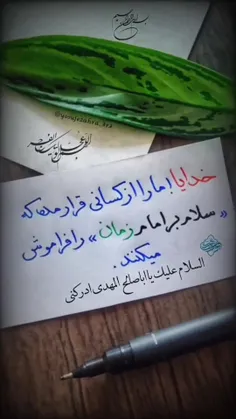 بسم الله الرحمن الرحیم
خدایا! ما را از کسانی قرار مده که
«سلام بر امام زمان» را فراموش
میکنند.
السلام علیک یا اباصالح المهدی ادرکنی